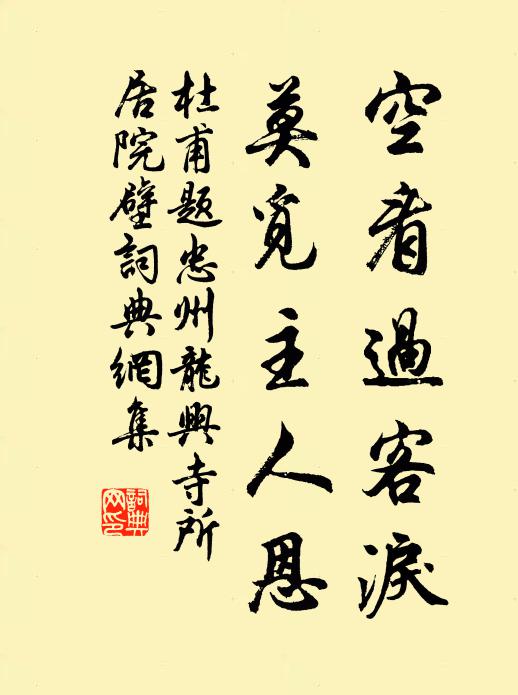 空看過客淚
莫覓主人恩
杜甫題忠州龍興寺所
居院壁詞典網集
詞典
网印